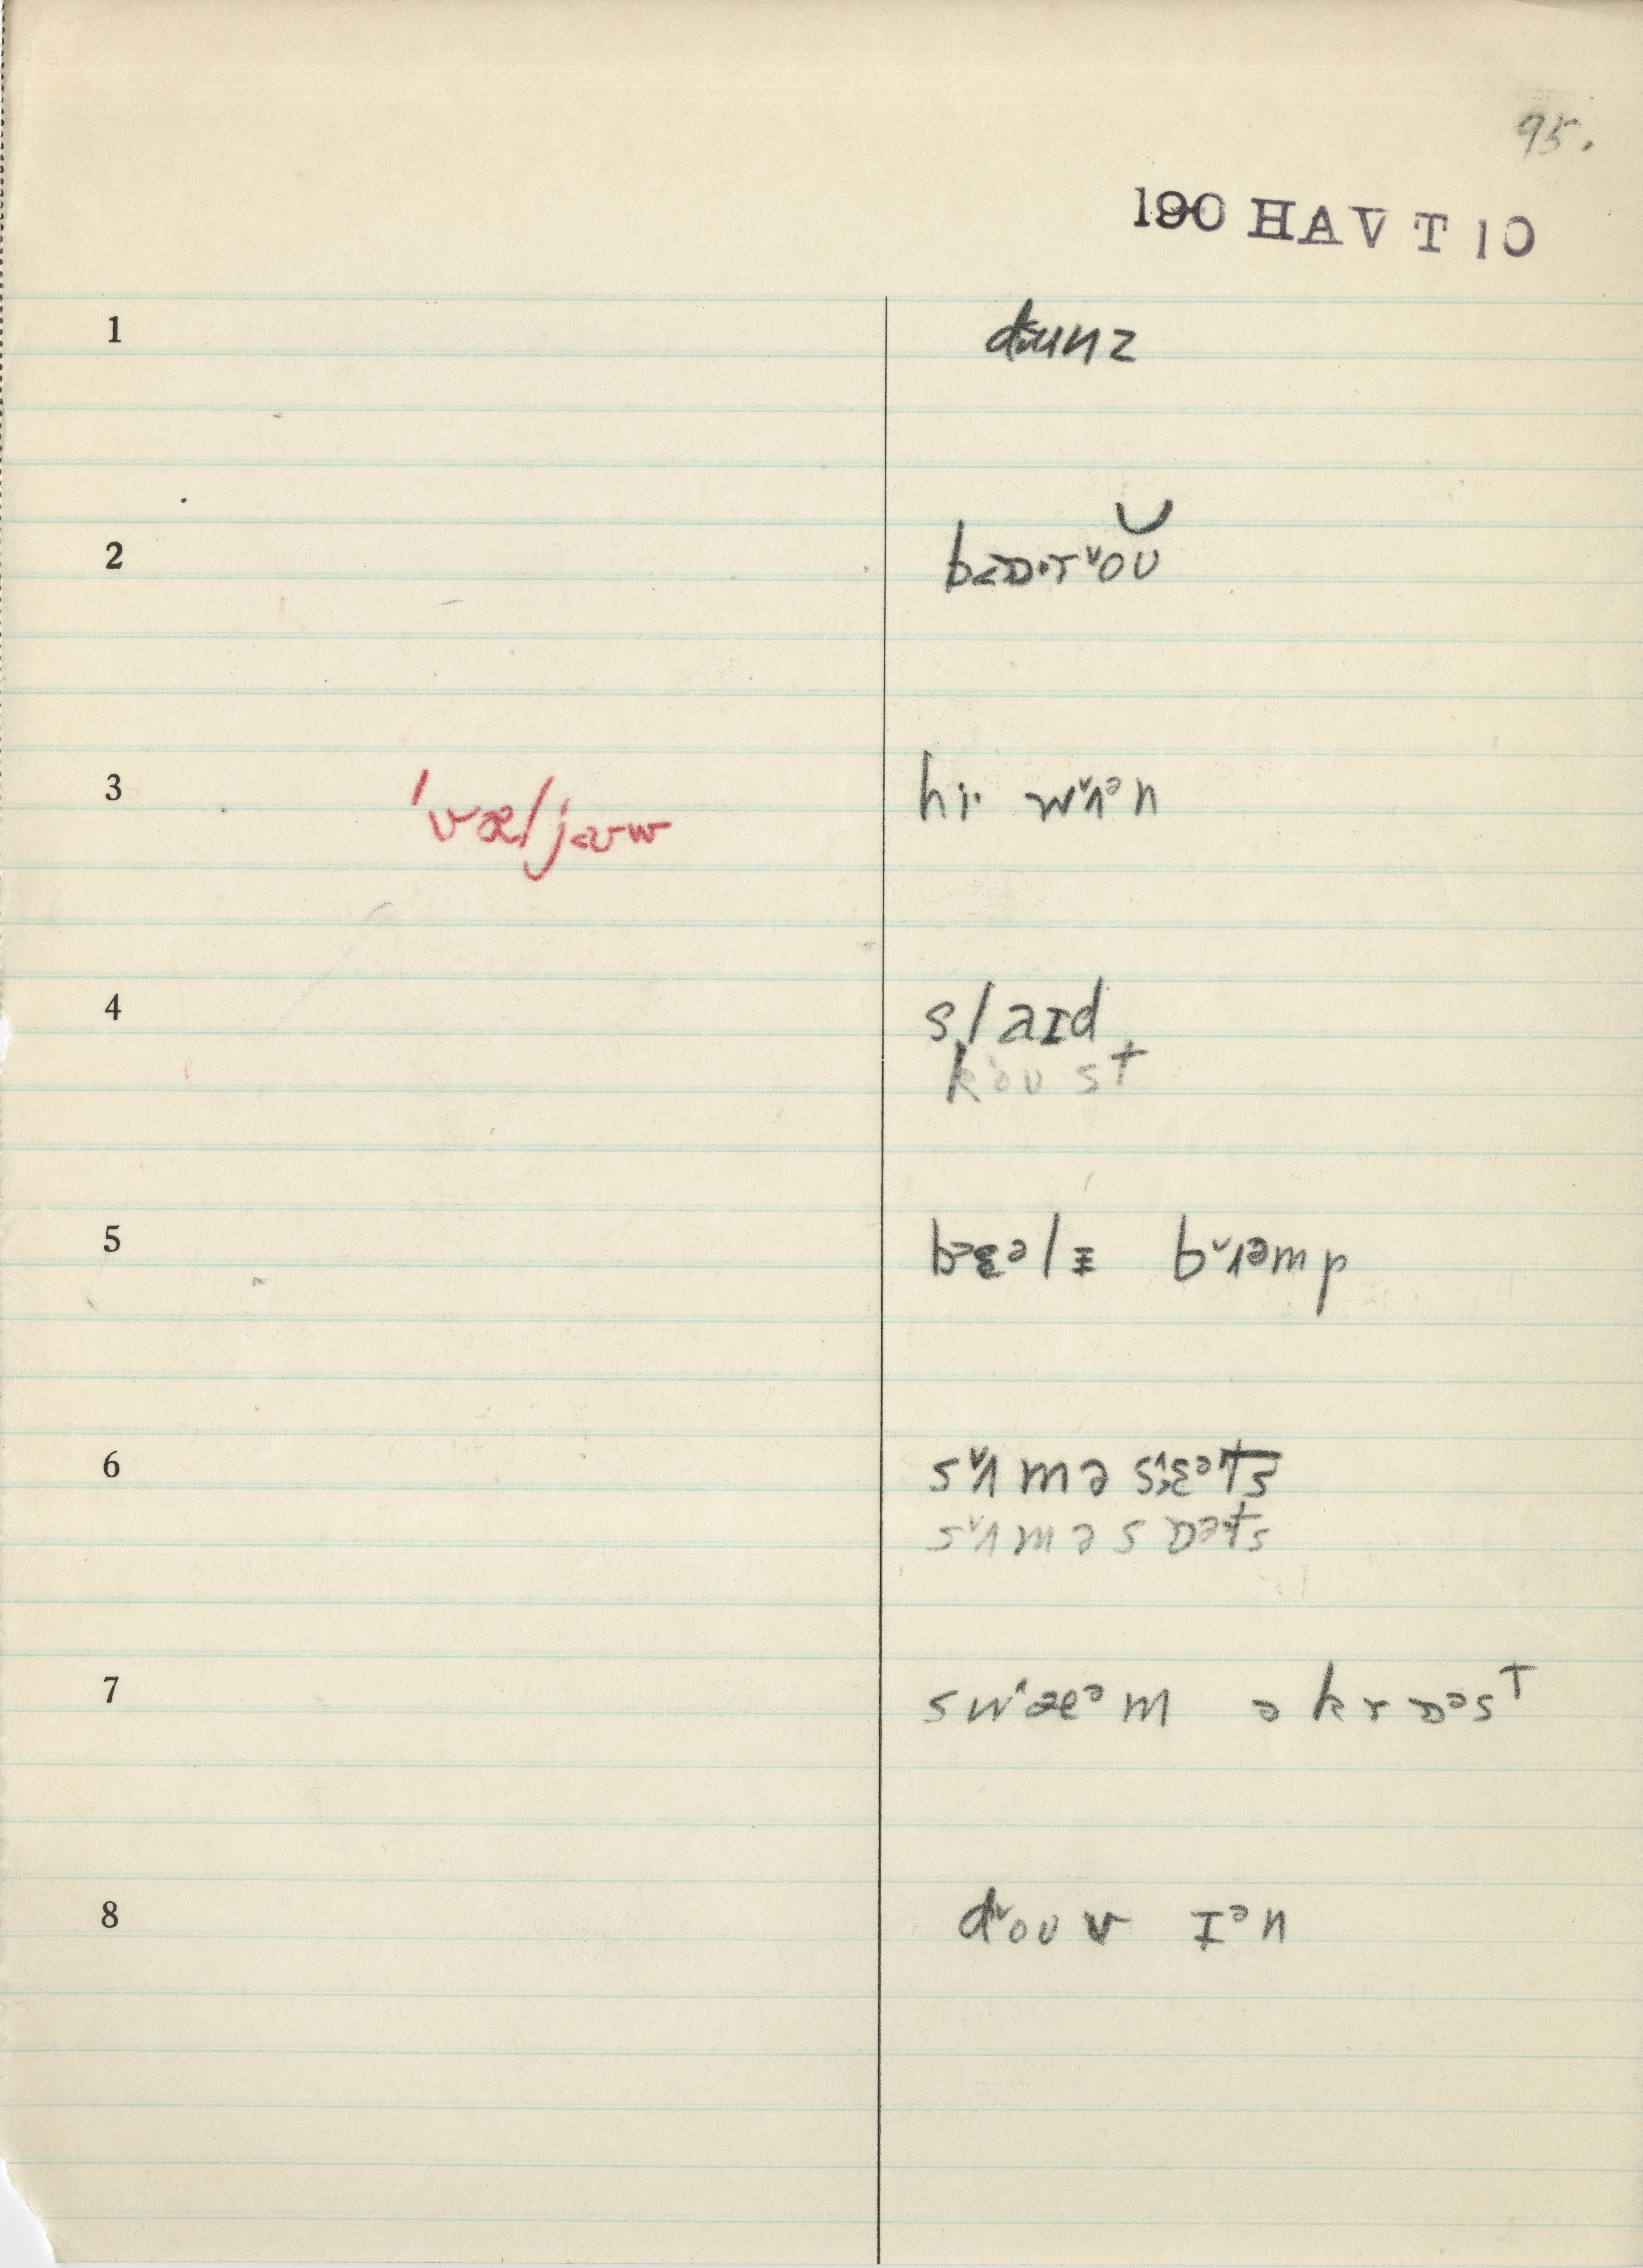 95.
190 HAV T 10
1 dʉunz
2 b<ɒ·r ˅oʊ
3 'væljəvw hi· w˅ʌᵊn
4 slaɪd
koʊst
5 bᵊɛᵊlɪ b˅ʌᵊmp
6 s˅ʌmə sɛᵊts
s˅ʌməsɒᵊts
7 sw^æᵊm əkrɒᵊst
8 d˅oʊv ɪᵊn